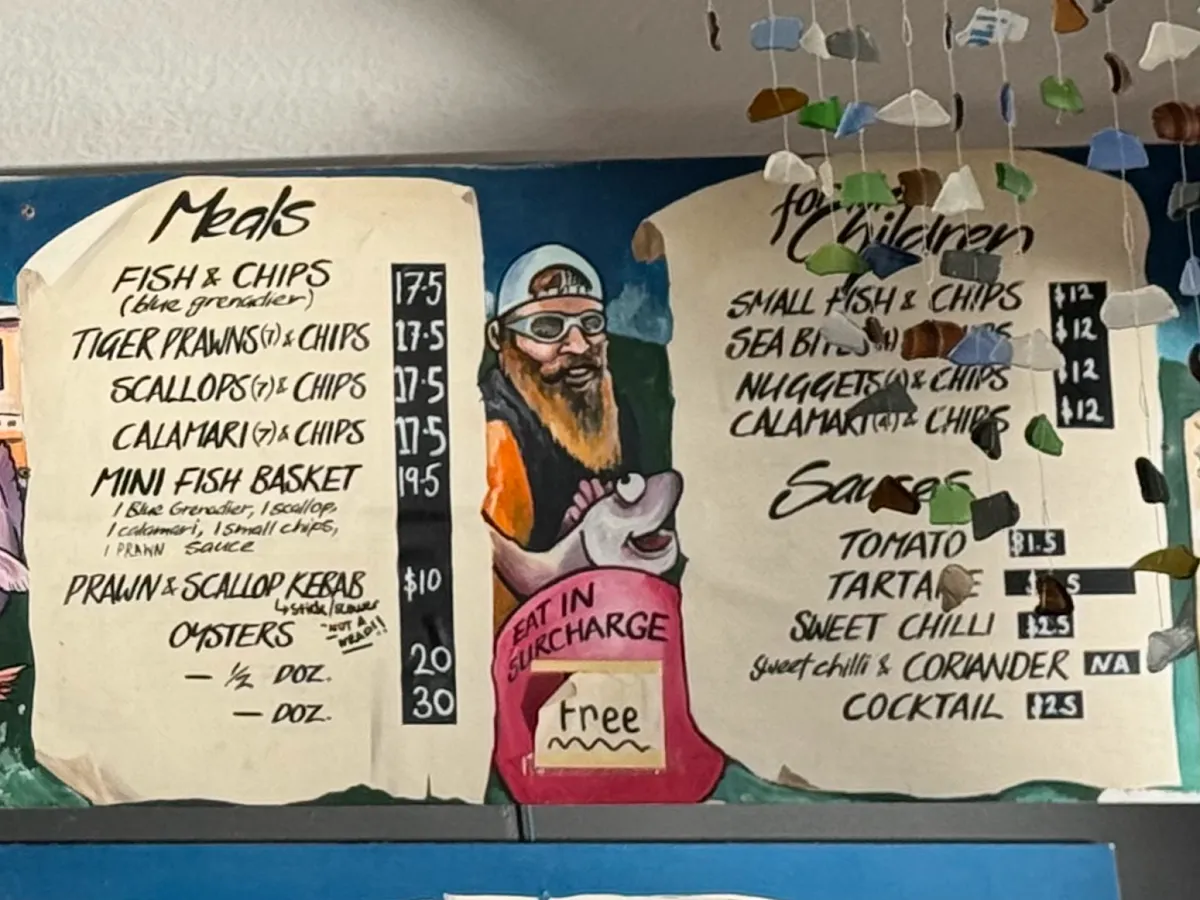 Meals
FISH & CHIPS 17.5
(blue grenadier)
TIGER PRAWNS (7) & CHIPS 17.5
SCALLOPS (7) & CHIPS 17.5
CALAMARI (7) & CHIPS 17.5
MINI FISH BASKET 19.5
1 Blue Grenadier, 1 scallop,
1 calamari, 1 small chips,
1 PRAWN sauce
PRAWN & SCALLOP KEBAB $10
OYSTERS
NOT A
— 1/2 DOZ. 20
— DOZ. 30
EAT IN
SURCHARGE
Free
Children
SMALL FISH & CHIPS $12
SEA $12
NUGGETS & CHIPS $12
CALAMARI (4) & CHIPS $12
Sauces
TOMATO $1.5
TARTARE
SWEET CHILLI $2.5
Sweet chilli & CORIANDER NA
COCKTAIL $2.5